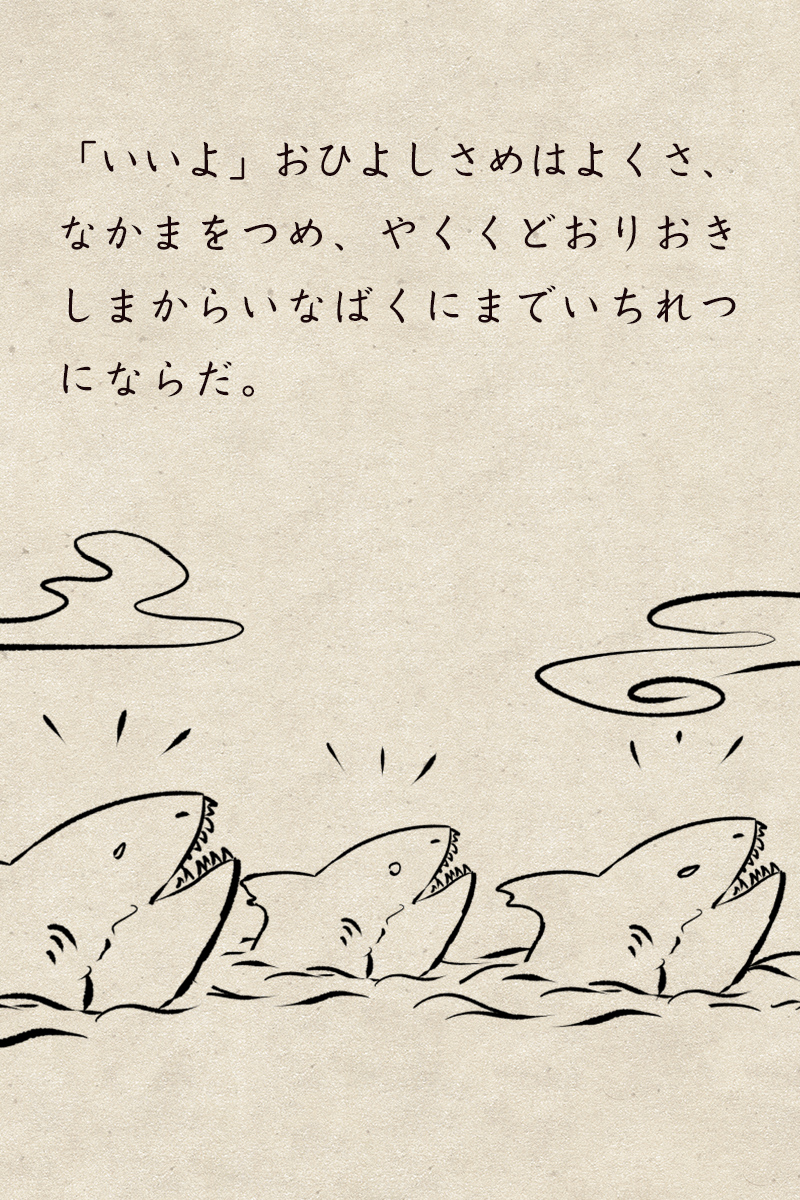 「いいよ」おひよしさめはよくさ、
なかまをつめ、やくくどおりおき
しまからいなばくにまでいちれつ
にならだ。